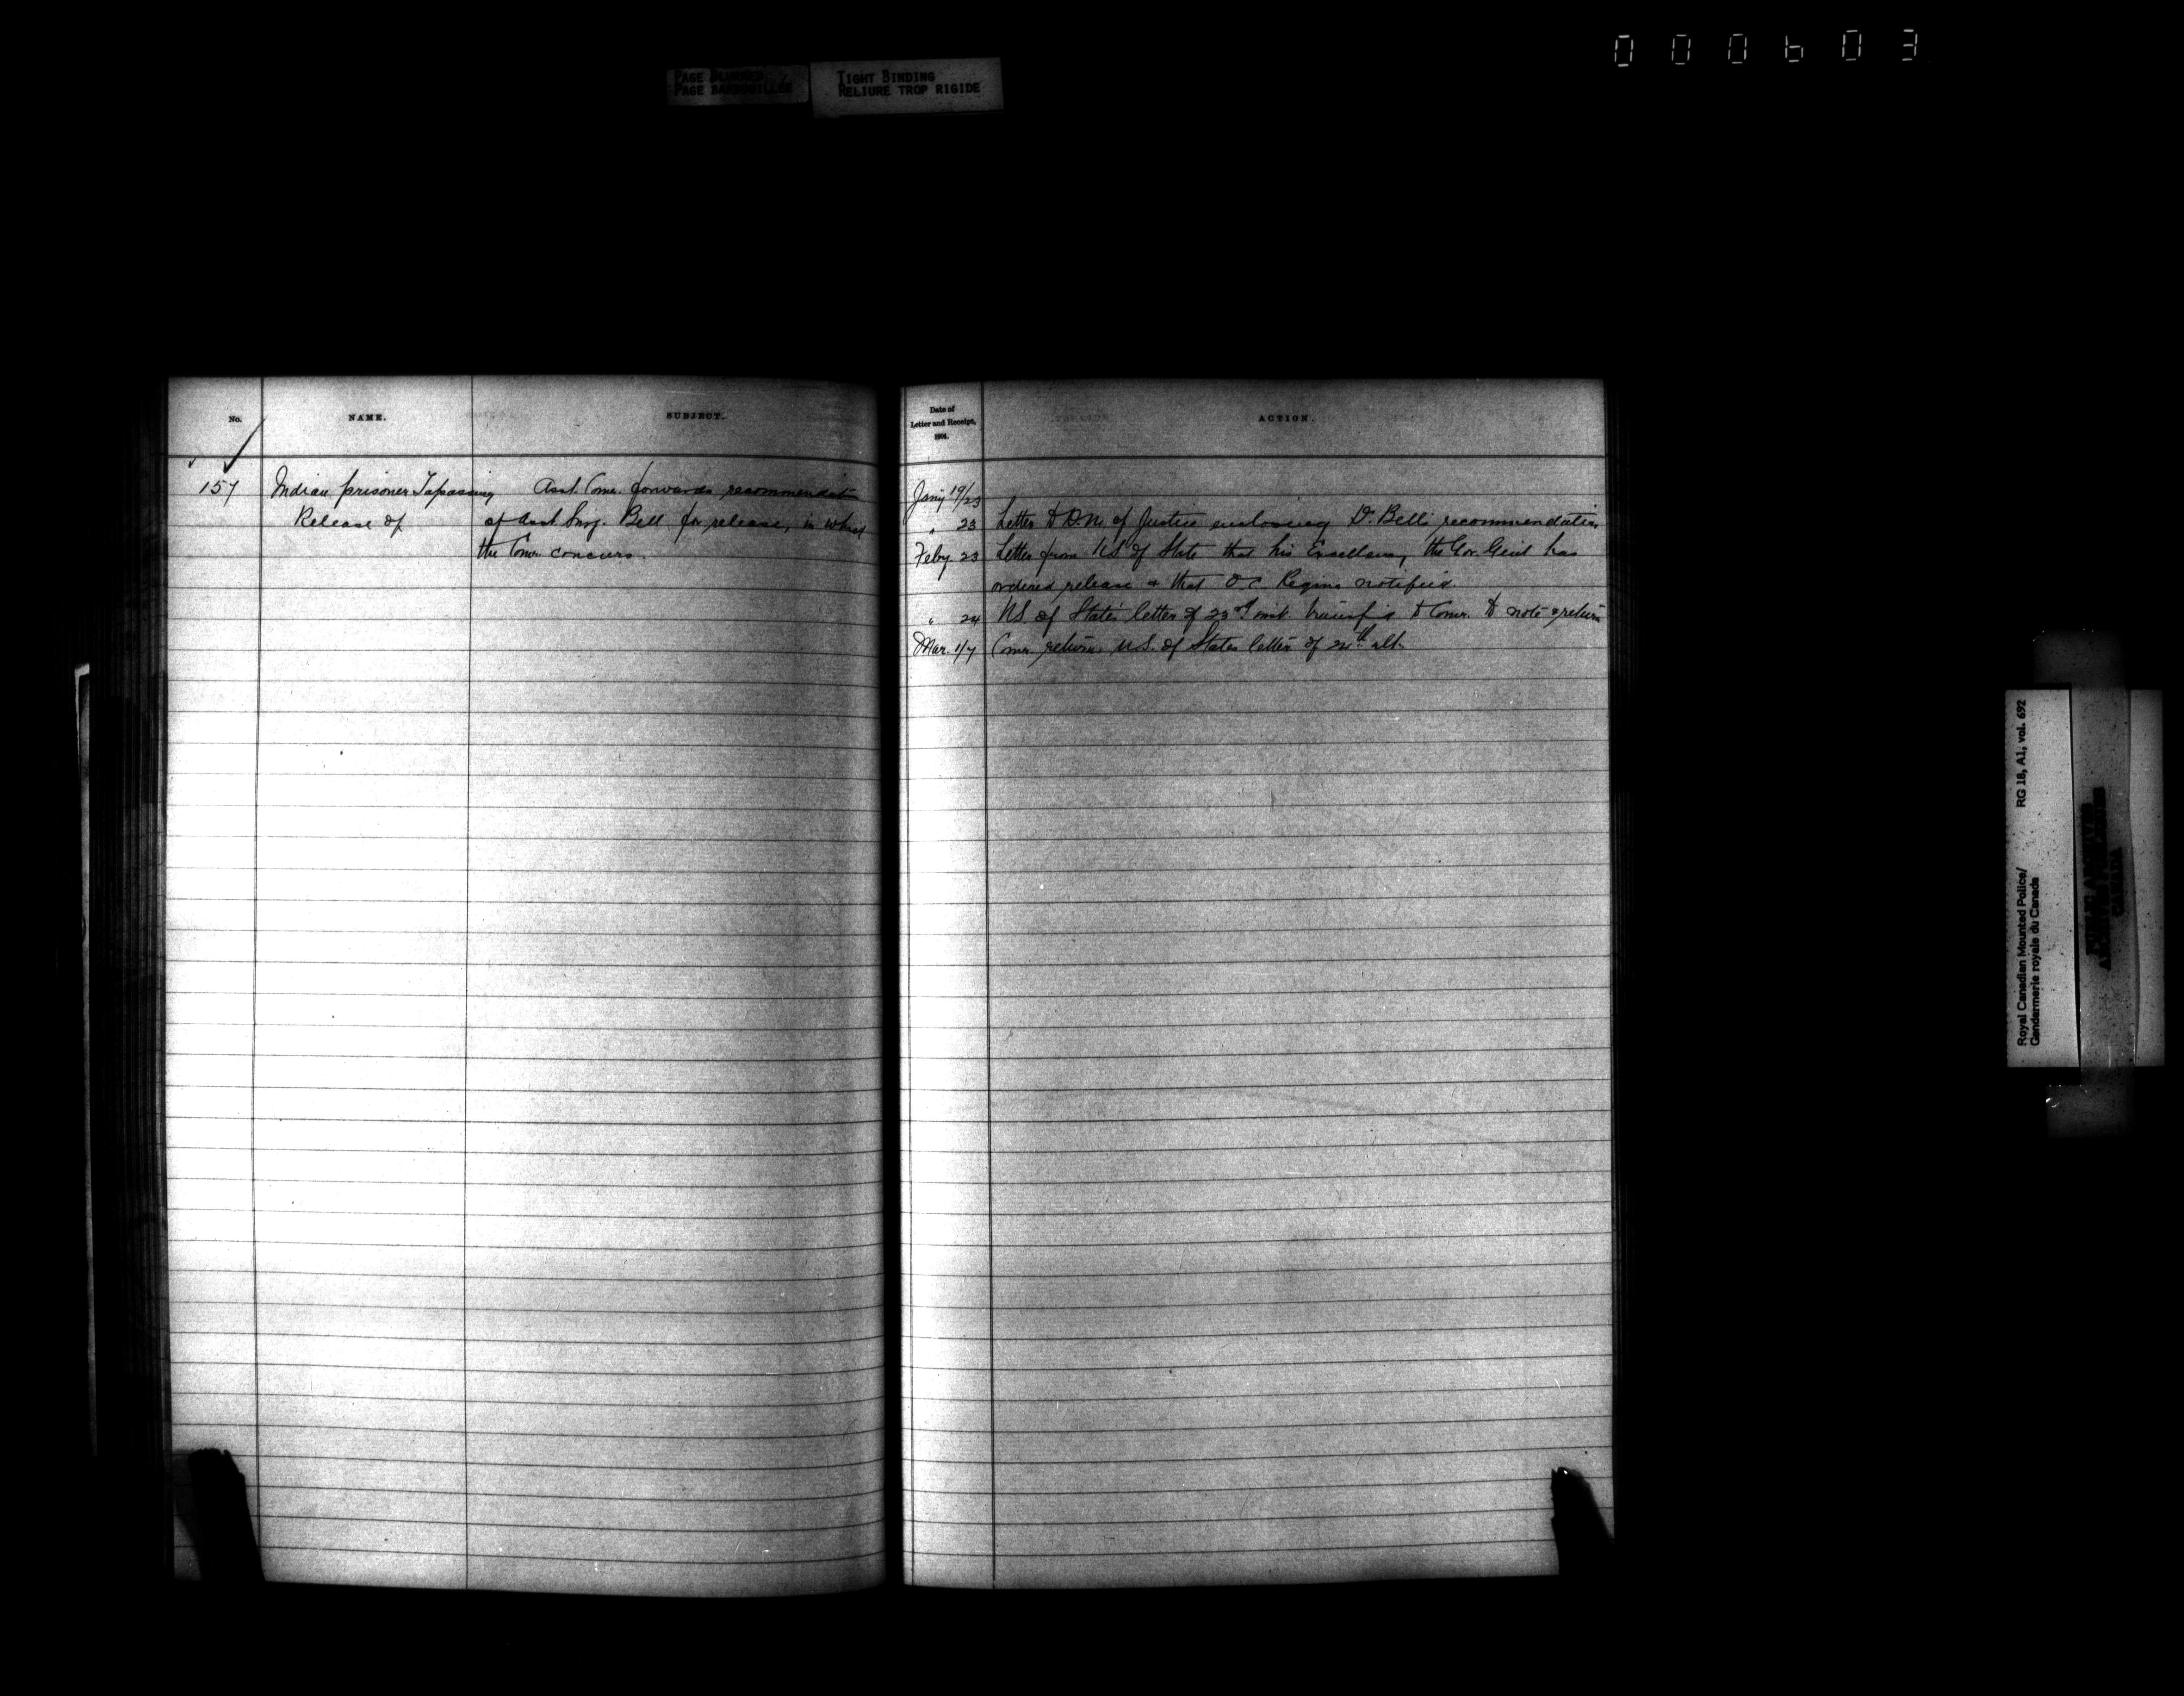 000603
PAGE BLURRED
PAGE BARBOUILLÉE
TIGHT BINDING
RELIURE TROP RIGIDE
No.
NAME.
SUBJECT.
157
Indian prisoner Tapassing
Release of
Asst. Comr. forwards recommendation
of Asst. Surg. Bell for release, in which
the Comr. concurs.
Date of
Letter and Receipt,
1904.
ACTION.
Jany 19/23
" 23 Letter to D.M. of Justice enclosing Dr. Bell's recommendation
Feby. 23 Letter from U.S. of State that his Excellency the Gov. Genl has
ordered release & that O.C. Regina notified.
" 24 U.S. of State's letter of 23rd inst. to Comr. to note & return
Mar. 1/7 Comr. returns U.S. of States letter of 24th ult.
Royal Canadian Mounted Police/ RG 18, A1, vol. 692
Gendarmerie royale du Canada
PUBLIC ARCHIVES
ARCHIVES PUBLIQUES
CANADA